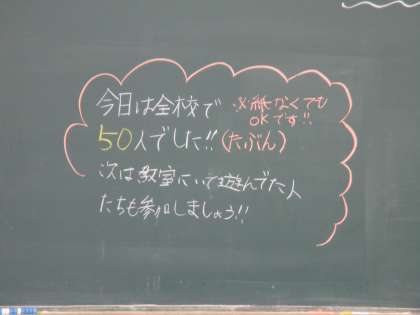 今日は全校で
※紙なくても
OKです!!
50人でした!!(たぶん)
次は教室にいて遊んでた人
たちも参加しましょう!!